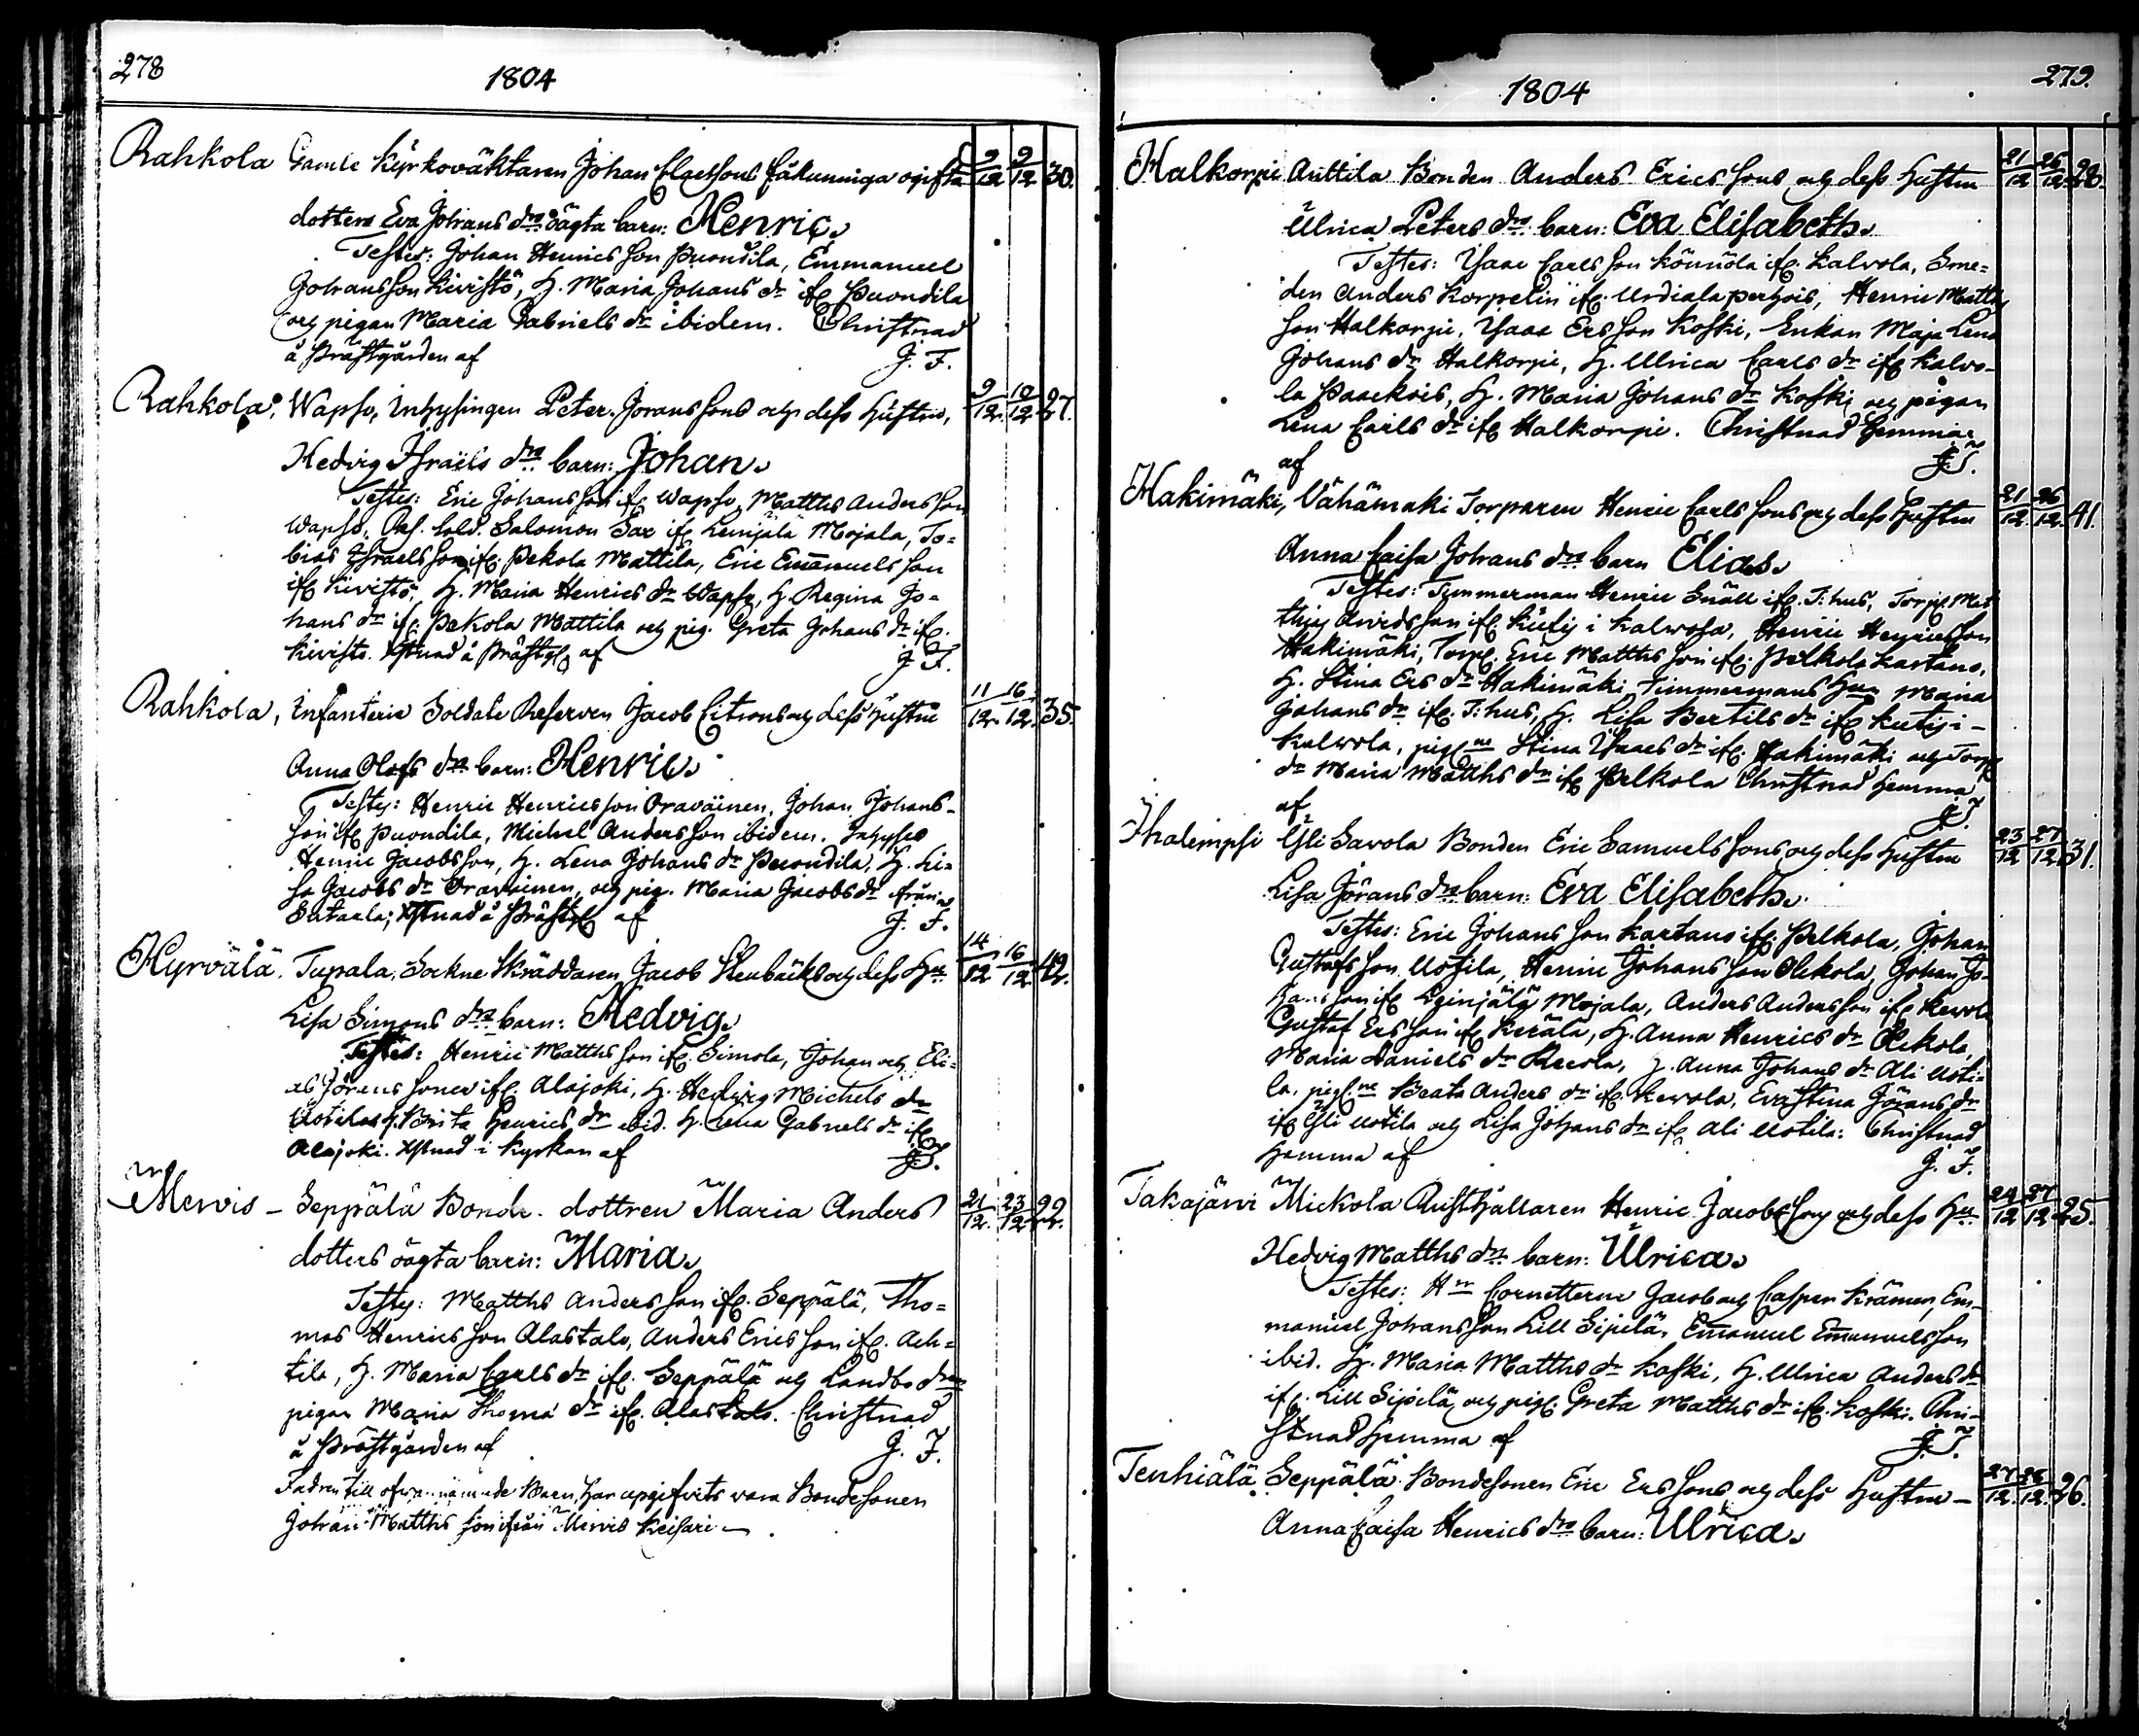 278
1804
Rahkola Gamle Kyrkoväktaren Johan Claessons fåkunniga ogifta 9/12 9/12 30.
dotters Eva Johans drs oägta barn: Henric.
Testes: Johan Henrics son Puondila, Emmanuel
Johansson Kivistö, H. Maria Johans dr ifr. Puondila
och pigan Maria Gabriels dr ibidem. Christnad
å Prästgården af J. F.
Rahkola, Wapso, Inhysingen Peter Joransons och dess Hustru, 9/12. 10/12 27.
Hedvig Israëls drs barn: Johan.
Testes: Eric Johansson ifr Wapso, Matths Andersson
Wapso, Sold. Salomon Sax ifr Leinjälä Mojala, To=
bias Israelsson ifr. Pekola Mattila, Eric Emanuelsson
ifr Kivistö, H. Maria Henrics dr Wapso, H. Regina Jo=
hans dr ifr. Pekola Mattila och pig. Greta Johans dr ifr.
Kivisto. Xstnad å Prästg. af J. F.
Rahkola, Infanterie Soldate Reserven Jacob Citrons och dess Hustru 11/12. 16/12. 35.
Anna Olofs drs barn: Henric.
Testes: Henric Henricsson Oravainen, Johan Johans-
son ifr Puondila, Michel Andersson ibidem. Inhyses
Henric Jacobsson, H. Lena Johans dr Puondila, H. Li=
sa Jacobs dr Oravainen, och pig. Maria Jacobs dr ifrån
Sattaala; Xstnad å Prästg. af J. F.
Hyrvälä. Tupala, Sockne Skräddaren Jacob Stenbäcks och dess Hu. 14/12 16/12 42.
Lisa Simons drs barn: Hedvig.
Testes: Henric Matths son ifr. Simola, Johan och Eli=
as Görans söner ifr. Alajoki, H. Hedvig Michels dr
Uotila H. Brita Henrics dr ibid. H. Lena Gabriels dr ifr
Alajoki. Xstnad i Kyrkan af J. F.
Mervis - Seppälä Bonde dottren Maria Anders 21/12. 23/12 22.
dotters oägta barn: Maria.
Testes: Matths Andersson ifr. Seppälä, Tho=
mas Henricsson Alastalo, Anders Ericsson ifr. Ach=
tila, H. Maria Carls dr ifr. Seppälä och Landbo drn
pigan Maria Thomæ dr ifr. Alastalo. Christnad
å Prästgården af J. F.
Fadren till ofvannämnde Barn, har uppgifvits vara Bondesonen
Johan Matths son ifrån Mervis Keisari —
1804
279.
Halkorpi Anttila Bonden Anders Ericssons och dess Hustru 21/12 26/12 28.
Ulrica Peters drs barn: Eva Elisabeth.
Testes: Isaac Carlsson Könnölä ifr. Kalvola, Sme=
den Anders Korpelin ifr. Urdiala, Henric Matths
son Halkorpi, Isaac Ersson Koski, Enkan Maja Lena
Johans dr Halkorpi, H. Ulrica Carls dr ifr Kalvo-
la, H. Maria Johans dr Koski och pigan
Lena Carls dr ifr Halkorpi. Christnad hemma
af J. F.
Hakimäki, Vähämäki Torparen Henric Carlssons och dess Hustru 21/12. 26/12. 41.
Anna Caisa Johans drs barn Elias.
Testes: Timmerman Henric Snäll ifr. T:hus, Torp. Mat
thias Arvidsson ifr. Kutis i Kalvola, Henric Henricsson
Hakimäki, Torp. Eric Matths son ifr. Pelkola Kartano,
H. Stina Ers dr Hakimäki, Timmermans Hun Maria
Johans dr ifr. T:hus, H. Lisa Bertils dr ifr Kutis i -
Kalvola, pig:ne Stina Isaacs dr ifr. Hakimäki och Torp
dr Maria Matths dr ifr Pelkola Christnad hemma
af J. F.
Ihalempsi Yli Savola Bonden Eric Samuelssons och dess Hustru 23/12 27/12 31.
Lisa Jörans drs barn: Eva Elisabeth.
Testes: Eric Johansson Kartano ifr. Pelkola, Johan
Gustafsson Uotila, Henric Johansson Ollikola, Johan Jo-
hansson ifr Leinjälä Mojala, Anders Andersson ifr Kervola
Gustaf Ersson ifr Kerälä, H. Anna Henrics dr Ollikola,
Maria Daniels dr, H. Anna Johans dr Ali Uoti-
la, pig:ne Beata Anders dr ifr. Kervola, Eva Stina Görans dr
ifr Yli Uotila och Lisa Johans dr ifr Ali Uotila: Christnad
hemma af J. F.
Takajärvi Mickola Rusthållaren Henric Jacobssons och dess Hu. 24/12 27/12 25.
Hedvig Matths drs barn: Ulrica.
Testes: Hrr Cornetterne Jacob och Casper Krämer, Em-
manuel Johansson Lill Sipilä, Emanuel Emanuelsson
ibid. H. Maria Matths dr Koski, H. Ulrica Anders dr
ifr. Lill Sipilä och pig. Greta Matths dr ifr. Koski. Chri-
stnad hemma af J. F.
Tenhiälä, Seppälä Bondesonen Eric Erssons och dess Hustru - 27/12. 28/12. 26.
Anna Caisa Henrics drs barn: Ulrica.